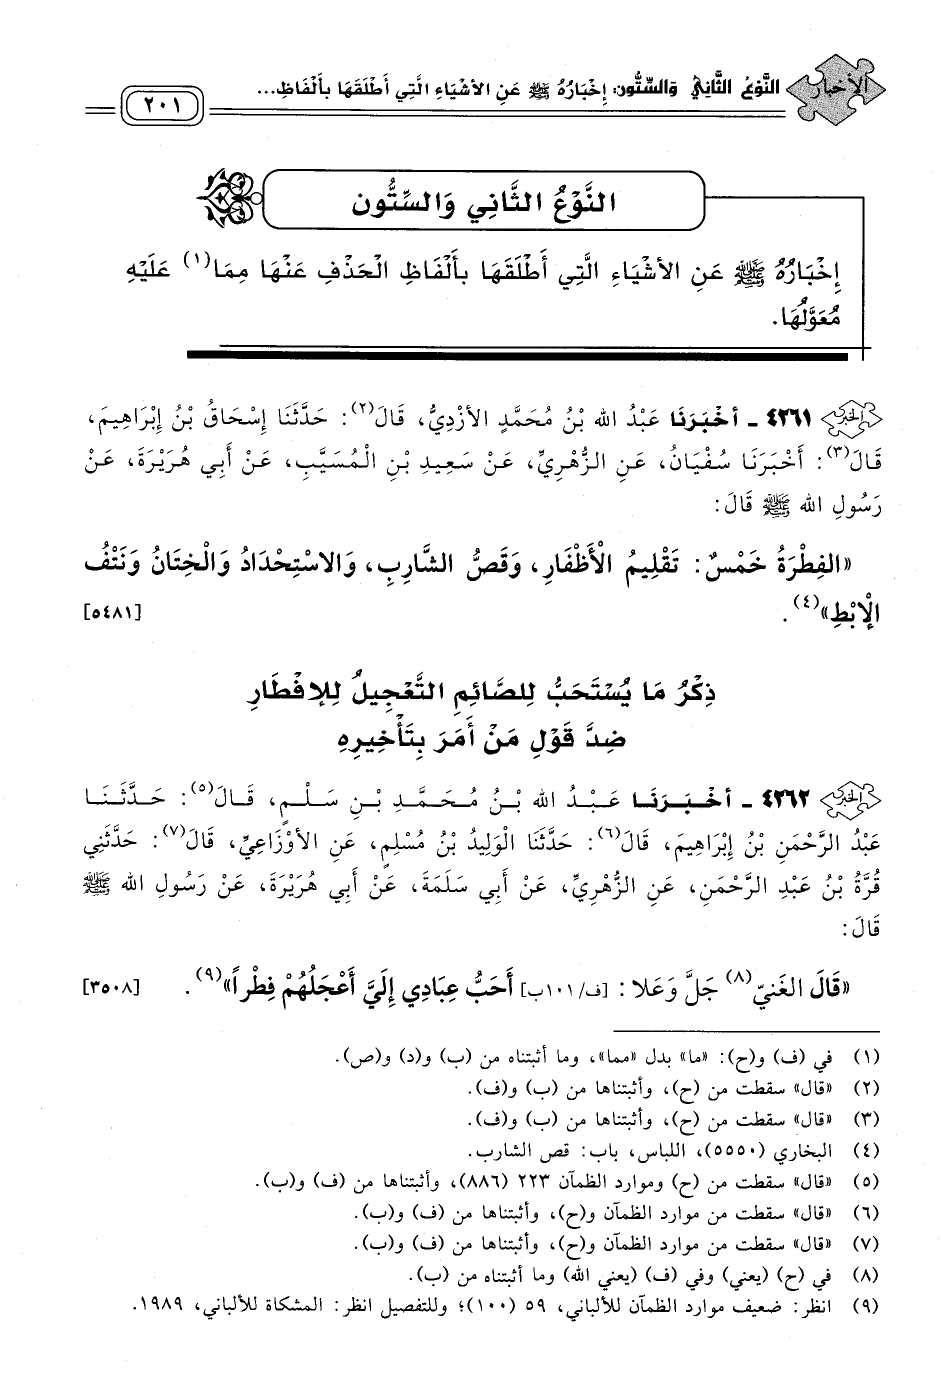 الأخبار
النَّوْعُ الثَّانِي وَالسِّتُّون: إِخْبَارُهُ ﷺ عَنِ الأَشْيَاءِ الَّتِي أَطْلَقَهَا بأَلْفَاظِ...
٢٠١
النَّوْعُ الثَّانِي وَالسِّتُّون
إِخْبَارُهُ ﷺ عَنِ الأَشْيَاءِ الَّتِي أَطْلَقَهَا بأَلْفَاظِ الْحَذْفِ عَنْهَا مِمَا(١) عَلَيْهِ
مُعَوَّلُهَا.
٤٢٦١ - أخْبَرَنَا عَبْدُ الله بْنُ مُحَمَّدٍ الأزْدِيُّ، قَالَ(٢): حَدَّثَنَا إسْحَاقُ بْنُ إبْرَاهِيمَ،
قَالَ(٣): أَخْبَرَنَا سُفْيَانُ، عَنِ الزُّهْرِيِّ، عَنْ سَعِيدِ بْنِ الْمُسَيَّبِ، عَنْ أَبِي هُرَيْرَةَ، عَنْ
رَسُولِ الله ﷺ قَالَ:
«الفِطْرَةُ خَمْسٌ: تَقْلِيمُ الْأَظْفَارِ، وَقَصُّ الشَّارِبِ، وَالاسْتِحْدَادُ وَالْخِتَانُ وَنَتْفُ
الْإبْطِ»(٤). [٥٤٨١]
ذِكْرُ مَا يُسْتَحَبُّ لِلصَّائِمِ التَّعْجِيلُ لِلإفْطَارِ
ضِدَّ قَوْلِ مَنْ أَمَرَ بِتَأْخِيرِهِ
٤٢٦٢ - أخْبَرَنَا عَبْدُ الله بْنُ مُحَمَّدِ بْنِ سَلْمٍ، قَالَ(٥): حَدَّثَنَا
عَبْدُ الرَّحْمَنِ بْنُ إبْرَاهِيمَ، قَالَ(٦): حَدَّثَنَا الْوَلِيدُ بْنُ مُسْلِمٍ، عَنِ الأوْزَاعِيِّ، قَالَ(٧): حَدَّثَنِي
قُرَّةُ بْنُ عَبْدِ الرَّحْمَنِ، عَنِ الزُّهْرِيِّ، عَنْ أَبِي سَلَمَةَ، عَنْ أَبِي هُرَيْرَةَ، عَنْ رَسُولِ الله ﷺ
قَالَ:
«قَالَ الغَنيّ(٨) جَلَّ وَعَلا: [ف/١٠١ب] أَحَبُّ عِبَادِي إلَيَّ أَعْجَلُهُمْ فِطْراً»(٩). [٣٥٠٨]
(١) في (ف) و(ح): «ما» بدل «مما»، وما أثبتناه من (ب) و(د) و(ص).
(٢) «قال» سقطت من (ح)، وأثبتناها من (ب) و(ف).
(٣) «قال» سقطت من (ح)، وأثبتناها من (ب) و(ف).
(٤) البخاري (٥٥٥٠)، اللباس، باب: قص الشارب.
(٥) «قال» سقطت من (ح) وموارد الظمآن ٢٢٣ (٨٨٦)، وأثبتناها من (ف) و(ب).
(٦) «قال» سقطت من موارد الظمآن و(ح)، وأثبتناها من (ف) و(ب).
(٧) «قال» سقطت من موارد الظمآن و(ح)، وأثبتناها من (ف) و(ب).
(٨) في (ح) (يعني) وفي (ف) (يعني الله) وما أثبتناه من (ب).
(٩) انظر: ضعيف موارد الظمآن للألباني، ٥٩ (١٠٠)؛ وللتفصيل انظر: المشكاة للألباني، ١٩٨٩.